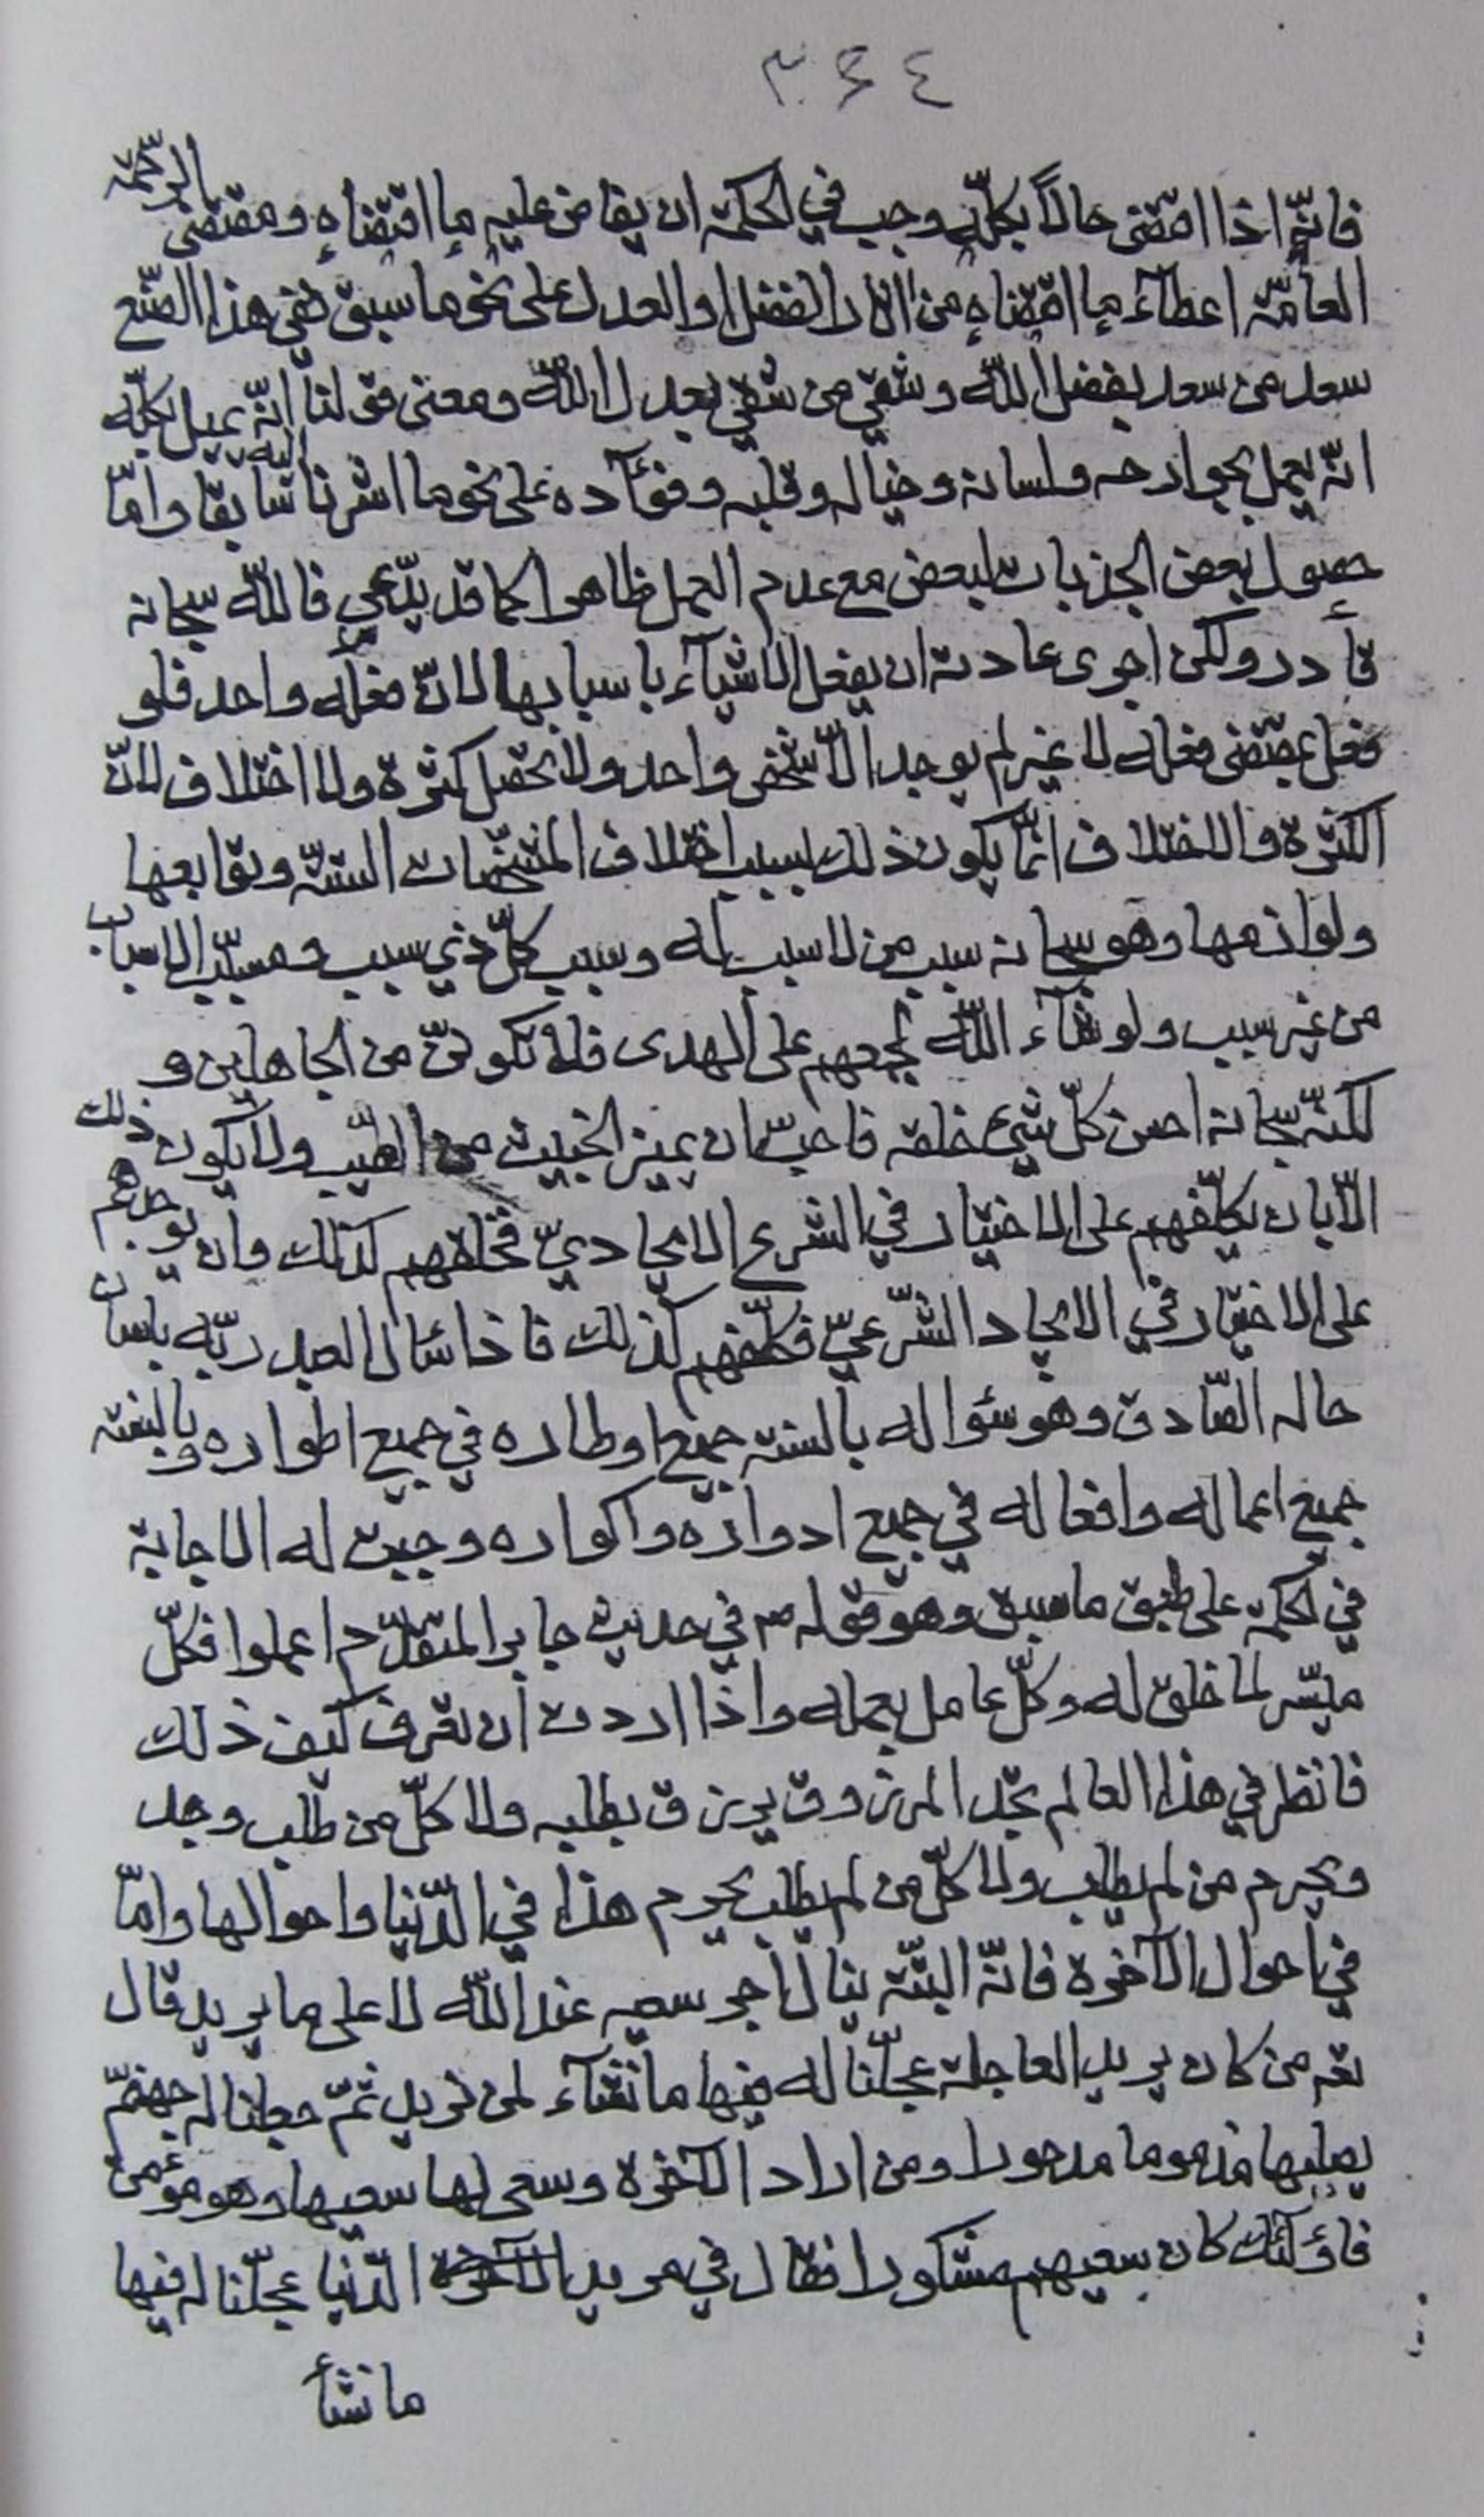 ٣٤٤
فانّه اذا اقتضى حالاً بكلّه وجب في الحكمة ان يفاض عليه ما اقتضاه ومقتضى الرحمة
العامّة اعطآء ما اقتضاه من اثار الفضل او العدل على نحو ما سبق ففي هذا الصّنع
سعد من سعد بفضل اللّه وشقي من شقي بعدل اللّه ومعنى قولنا انّه يميل بكلّه
انّه يعمل بجوارحه ولسانه وخياله وقلبه وفؤآده على نحو ما اشرنا اليه سابقا وامّا
حصول بعض الجذبات لبعض مع عدم العمل ظاهرا كما قد يدّعي فاللّه سبحانه
قادر ولكن اجرى عادته ان يفعل الاشيآء باسبابها لانّ فعله واحد فلو
فعل بمقتضى فعله لا غير لم يوجد الّا شخص واحد ولا يحصل كثرة ولا اختلاف لانّ
الكثرة والاختلاف انّما يكون ذلك بسبب اختلاف المشخّصات الستّة وتوابعها
ولوازمها وهو سبحانه سبب من لا سبب له وسبب كلّ ذي سبب ومسبّب الاسباب
من غير سبب ولو شآء اللّه لجمعهم على الهدى فلا تكوننّ من الجاهلين و
لكنّه سبحانه احسن كلّ شيء خلقه فاحبّ ان يميز الخبيث من الطيّب ولا يكون ذلك
الّا بان يكلّفهم على الاختيار في الشرع الايجاديّ فخلقهم كذلك وان يوجدهم
على الاختيار في الايجاد الشّرعيّ فكلّفهم كذلك فاذا سأل العبد ربّه بلسان
حاله الصّادق وهو سؤاله بالسنة جميع اوطاره في جميع اطواره وبالسنة
جميع اعماله وافعاله في جميع ادواره واكواره وجبت له الاجابة
في الحكمة على طبق ما سبق وهو قوله ص في حديث جابر المتقدّم اعملوا فكلّ
ميسّر لما خلق له وكلّ عامل بعمله واذا اردت ان تعرف كيف ذلك
فانظر في هذا العالم تجد المرزوق يرزق بطلبه ولا كلّ من طلب وجد
ويحرم من لم يطلب ولا كلّ من لم يطلب يحرم هذا في الدّنيا واحوالها وامّا
في احوال الآخرة فانّه البتّة ينال اجر سعيه عند اللّه لا على ما يريد قال
تعه من كان يريد العاجلة عجّلنا له فيها ما نشآء لمن نريد ثمّ جعلنا له جهنّم
يصليها مذموما مدحورا ومن اراد الآخرة وسعى لها سعيها وهو مؤمن
فاؤلئك كان سعيهم مشكورا فقال في مريد الآخرة الدّنيا عجّلنا له فيها
ما نشأ